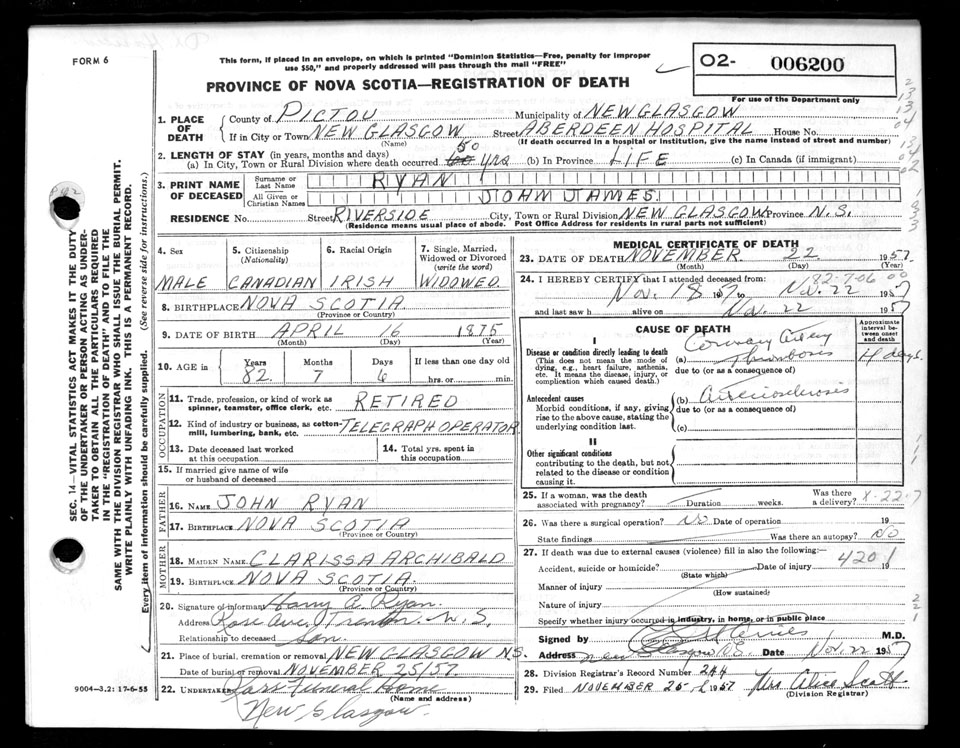 FORM 6
This form, if placed in an envelope, on which is printed "Dominion Statistics—Free, penalty for improper
use $50," and properly addressed will pass through the mail "FREE"
PROVINCE OF NOVA SCOTIA—REGISTRATION OF DEATH
O2- 006200
For use of the Department only
1. PLACE OF DEATH
County of PICTOU Municipality of NEW GLASGOW
If in City or Town NEW GLASGOW Street ABERDEEN HOSPITAL House No.
(Name) (If death occurred in a hospital or institution, give the name instead of street and number)
2. LENGTH OF STAY (in years, months and days)
(a) In City, Town or Rural Division where death occurred 50 yrs (b) In Province LIFE (c) In Canada (if immigrant)
3. PRINT NAME OF DECEASED
Surname or Last Name RYAN
All Given or Christian Names JOHN JAMES.
RESIDENCE No. Street RIVERSIDE City, Town or Rural Division NEW GLASGOW Province N.S.
(Residence means usual place of abode. Post Office Address for residents in rural parts not sufficient)
4. Sex
MALE
5. Citizenship
(Nationality)
CANADIAN
6. Racial Origin
IRISH
7. Single, Married,
Widowed or Divorced
(write the word)
WIDOWED
8. BIRTHPLACE NOVA SCOTIA
(Province or Country)
9. DATE OF BIRTH APRIL 16 1875
(Month) (Day) (Year)
10. AGE in
Years Months Days If less than one day old
82 7 6 hrs. or min.
OCCUPATION
11. Trade, profession, or kind of work as
spinner, teamster, office clerk, etc. RETIRED
12. Kind of industry or business, as cotton-
mill, lumbering, bank, etc. TELEGRAPH OPERATOR
13. Date deceased last worked
at this occupation
14. Total yrs. spent in
this occupation
15. If married give name of wife
or husband of deceased
FATHER
16. NAME JOHN RYAN
17. BIRTHPLACE NOVA SCOTIA
(Province or Country)
MOTHER
18. MAIDEN NAME CLARISSA ARCHIBALD
19. BIRTHPLACE NOVA SCOTIA.
(Province or Country)
20. Signature of informant Harry A. Ryan.
Address Rose Ave. Trenton. N.S.
Relationship to deceased Son.
21. Place of burial, cremation or removal NEW GLASGOW N.S.
Date of burial or removal NOVEMBER 25/57.
22. Undertaker Funeral Home
(Name and address)
New Glasgow.
MEDICAL CERTIFICATE OF DEATH
23. DATE OF DEATH NOVEMBER 22 1957
(Month) (Day) (Year)
24. I HEREBY CERTIFY that I attended deceased from: 82-7-06
Nov. 18 1957 to Nov. 22 1957
and last saw h alive on Nov. 22 1957
CAUSE OF DEATH
Approximate
interval be-
tween onset
and death
I
Disease or condition directly leading to death
(This does not mean the mode of
dying, e.g., heart failure, asthenia,
etc. It means the disease, injury, or
complication which caused death.)
(a) Coronary Artery
Thrombosis 4 days.
due to (or as a consequence of)
Antecedent causes
Morbid conditions, if any, giving
rise to the above cause, stating the
underlying condition last.
(b) Arteriosclerosis
due to (or as a consequence of)
(c)
II
Other significant conditions
contributing to the death, but not
related to the disease or condition
causing it.
25. If a woman, was the death
associated with pregnancy? Duration weeks.
Was there
a delivery? X-22-7
26. Was there a surgical operation? No Date of operation 19
State findings Was there an autopsy? No
27. If death was due to external causes (violence) fill in also the following:—
4201
Accident, suicide or homicide? Date of injury 19
(State which)
Manner of injury
(How sustained)
Nature of injury
Specify whether injury occurred in industry, in home, or in public place
Signed by M.D.
Address New Glasgow N.S. Date Nov. 22 1957
28. Division Registrar's Record Number 244
29. Filed NOVEMBER 25 1957 Mrs. Alice Scott
(Division Registrar)
9004—3.2: 17-6-55
SEC. 14—VITAL STATISTICS ACT MAKES IT THE DUTY
OF THE UNDERTAKER OR PERSON ACTING AS UNDER-
TAKER TO OBTAIN ALL THE PARTICULARS REQUIRED
IN THE "REGISTRATION OF DEATH" AND TO FILE THE
SAME WITH THE DIVISION REGISTRAR WHO SHALL ISSUE THE BURIAL PERMIT.
WRITE PLAINLY WITH UNFADING INK. THIS IS A PERMANENT RECORD.
Every item of information should be carefully supplied. (See reverse side for instructions.)